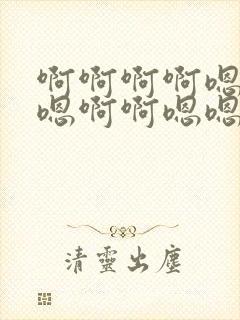 啊啊啊啊嗯
嗯啊啊嗯嗯
清靈出塵